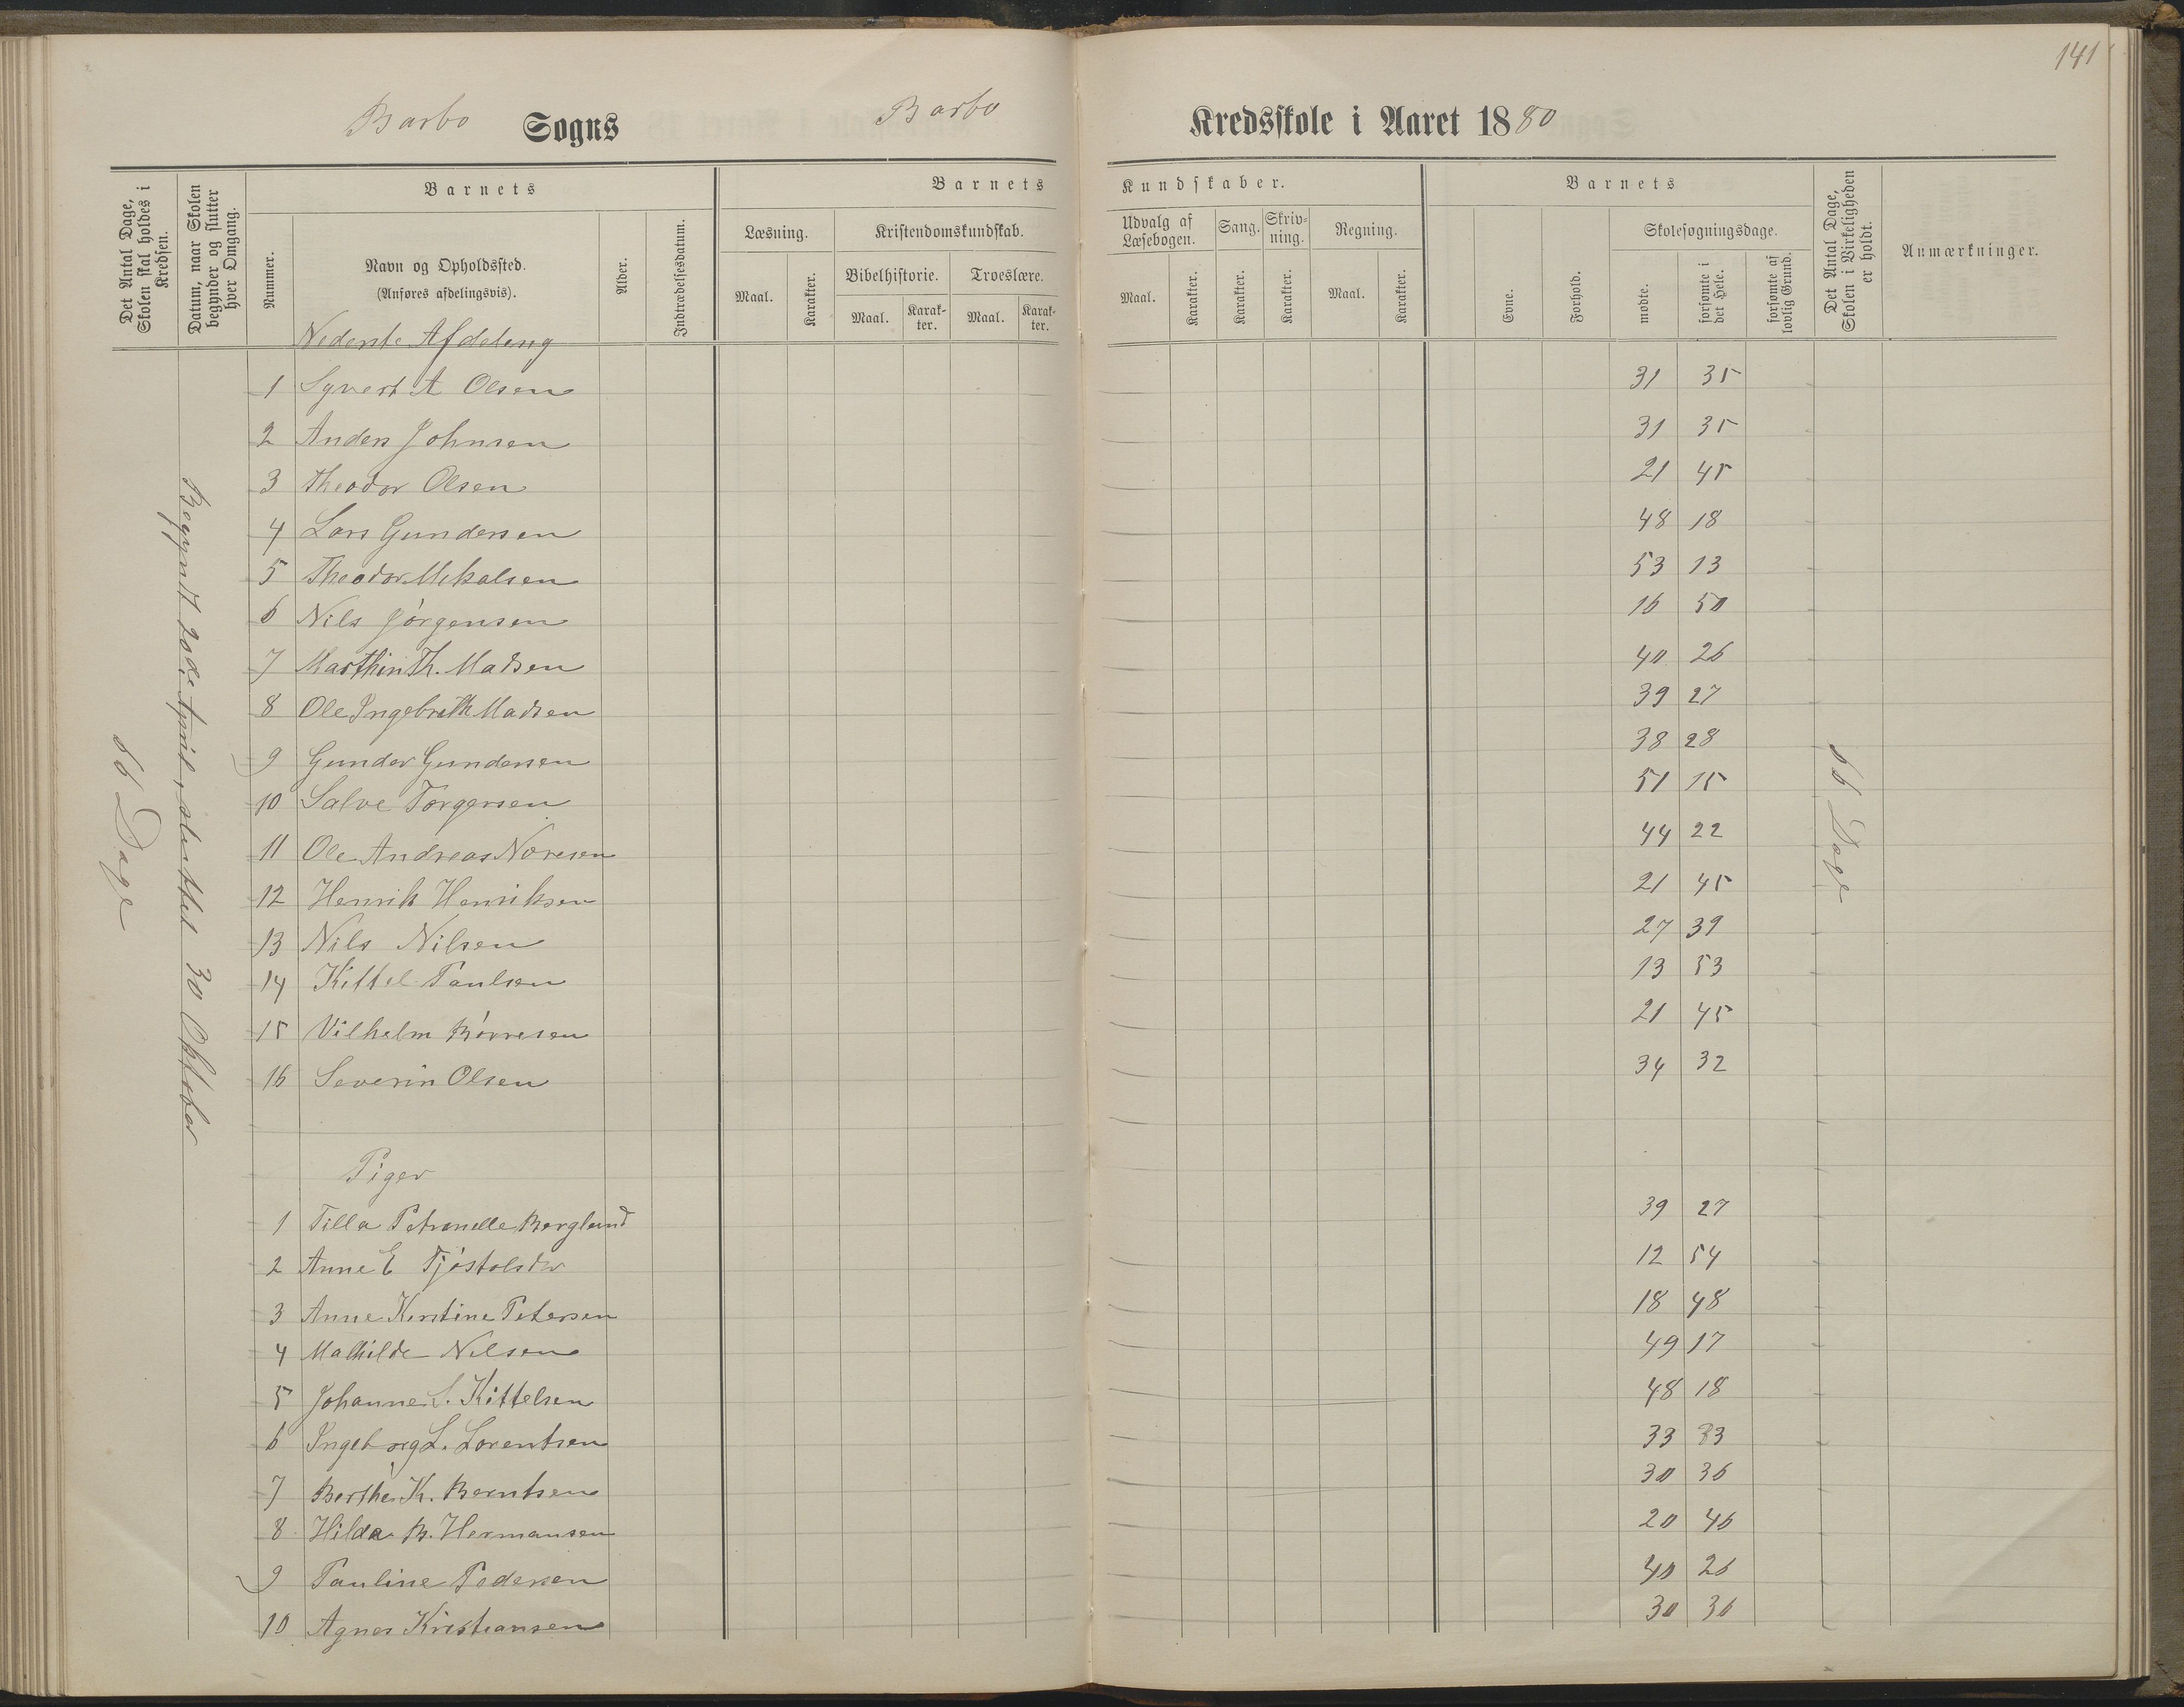 141
Barbo Sogns Barbo Kredsskole i Aaret 1880
Det Antal Dage, Skolen skal holdes i Kredsen.
Datum, naar Skolen begynder og slutter hver Omgang.
Barnets
Nummer.
Navn og Opholdssted.
(Anføres afdelingsvis).
Alder.
Indtrædelsesdatum.
Barnets Kundskaber.
Læsning.
Maal.
Karakter.
Kristendomskundskab.
Bibelhistorie.
Maal.
Karakter.
Troeslære.
Maal.
Karakter.
Udvalg af Læsebogen.
Maal.
Karakter.
Sang.
Karakter.
Skrivning.
Karakter.
Regning.
Maal.
Karakter.
Barnets
Evne.
Forhold.
Skolesøgningsdage.
mødte.
forsømte i det Hele.
forsømte af lovlig Grund.
Det Antal Dage, Skolen i Virkeligheden er holdt.
Anmærkninger.
66 Dage
Begyndt 20de April, sluttet 30 Oktober
66 Dage
Nederste Afdeling
1 Syvert A Olsen 31 35
2 Anders Johnsen 31 35
3 Theodor Olsen 21 45
4 Lars Gundersen 48 18
5 Theodor Mikalsen 53 13
6 Nils Jörgensen 16 50
7 Marthin Th. Madsen 40 26
8 Ole Ingebreth Madsen 39 27
9 Gunder Gundersen 38 28
10 Salve Torgersen 51 15
11 Ole Andreas Noresen 44 22
12 Henrik Henriksen 21 45
13 Nils Nilsen 27 39
14 Kittel Paulsen 13 53
15 Vilhelm Börresen 21 45
16 Severin Olsen 34 32
Piger
1 Tilla Petronelle Berglund 39 27
2 Anne E Tjöstolsdr 12 54
3 Anne Kirstine Petersen 18 48
4 Mathilde Nilsen 49 17
5 Johanne S. Kittelsen 48 18
6 Ingeborg L. Lorentsen 33 33
7 Berthe K. Berntsen 30 36
8 Hilda B. Hermansen 20 46
9 Pauline Pedersen 40 26
10 Agnes Kristiansen 30 36